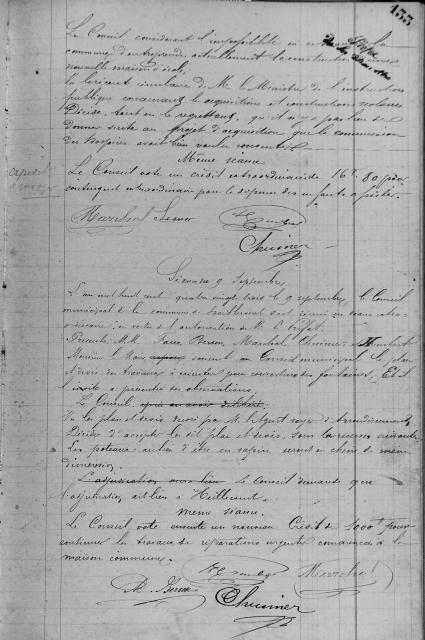 133
Le Conseil considérant l'impossibilité où se trouve la
commune d'entreprendre actuellement la construction d'une
nouvelle maison d'école,
Vu la récente circulaire de Mr le Ministre de l'instruction
publique concernant les acquisitions et constructions scolaires
Décide, tout en le regrettant, qu'il n'y a pas lieu de
donner suite au projet d'acquisition que la commission
des hospices avait bien voulu consentir.
Même séance
Le Conseil vote un crédit extraordinaire de 16f 80 pour
contingent extraordinaire pour la dépense des enfants assistés.
Marchal
Séance 9 Septembre
L'an mil huit cent quatre vingt trois le 9 septembre, le Conseil
municipal de la commune de s'est réuni en séance extra-
ordinaire, en vertu de l'autorisation de M. le Préfet.
Présents: M.M. Marchal
Monsieur le Maire soumet au Conseil municipal le plan
et devis des travaux à exécuter pour couverture des fontaines, Et il
l'invite à présenter ses observations.
Le Conseil, après en avoir délibéré,
Vu les plan et devis dressés par M. l'Agent voyer d'Arrondissement,
Décide d'accepter les dit plan et devis, sous la réserve suivante:
Les poteaux au lieu d'être en sapin seront en chêne de même
dimension.
L'adjudication aura lieu Le Conseil demande que
l'adjudication ait lieu à
même séance.
Le Conseil vote ensuite un nouveau Crédit de 1000f pour
continuer les travaux de réparations urgentes commencés à la
maison commune.
Marchal